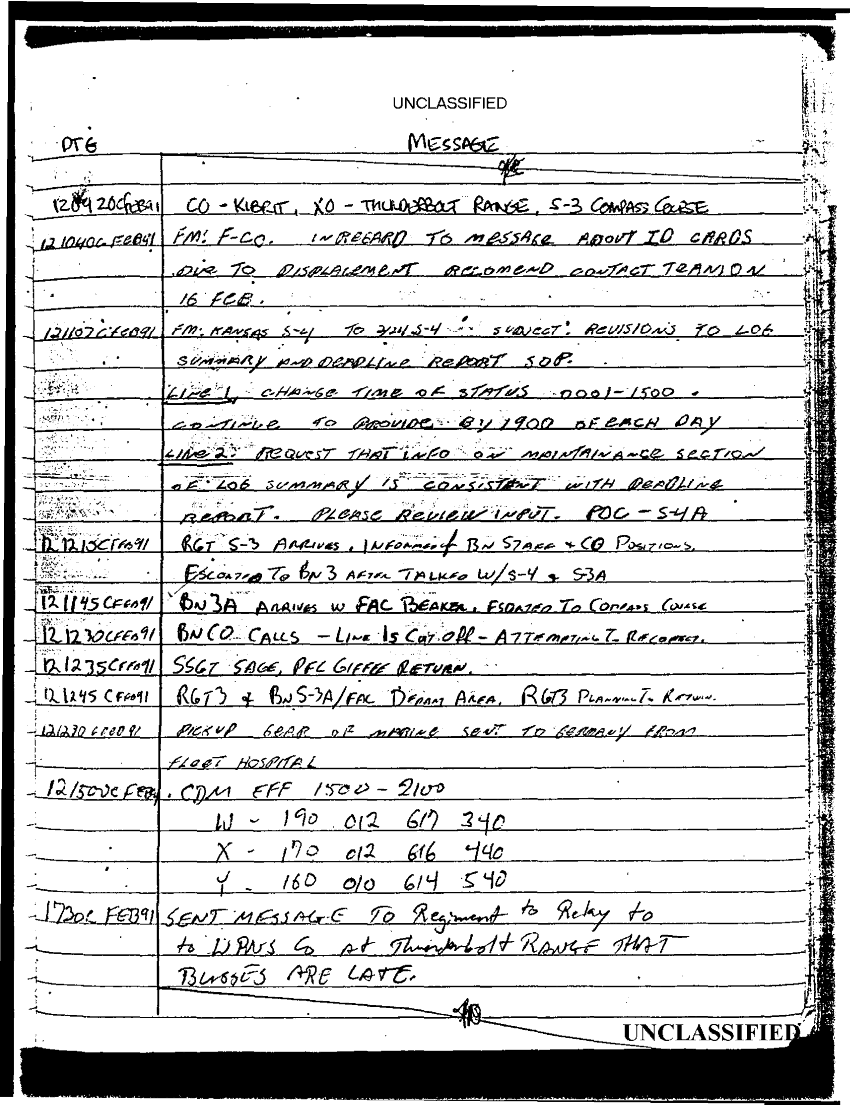 UNCLASSIFIED
DTG MESSAGE
120920CFEB91 CO - KIBRIT, XO - THUNDERBOLT RANGE, S-3 COMPASS COURSE
121040C FEB91 FM: F-CO. IN REGARD TO MESSAGE ABOUT ID CARDS
DUE TO DISPLACEMENT RECOMEND CONTACT TEAM ON
16 FEB.
121107CFEB91 FM: KANSAS S-4 TO 3/24 S-4 SUBJECT: REVISIONS TO LOG
SUMMARY AND DEADLINE REPORT SOP.
LINE 1, CHANGE TIME OF STATUS 0001-1500.
CONTINUE TO PROVIDE BY 1900 OF EACH DAY
LINE 2: REQUEST THAT INFO ON MAINTAINANCE SECTION
OF LOG SUMMARY IS CONSISTENT WITH DEADLINE
REPORT. PLEASE REVIEW INPUT. POC - S-4A
121215CFEB91 RGT S-3 ARRIVES, INFORMED OF BN STAFF + CO POSITIONS.
ESCORTED TO BN3 AFTER TALKED W/S-4 & S3A
121145CFEB91 BN3A ARRIVES W FAC BEAKER, ESORTED TO COMPASS COURSE
121230CFEB91 BN CO CALLS - LINE IS CUT OFF - ATTEMPTING TO RECONNECT.
121235CFEB91 SSGT SAGE, PFC RETURN.
121245CFEB91 RGT3 & BN S-3A/FAC AREA. RGT3 PLANNING TO RETURN.
121230CFEB91 PICKUP GEAR OF MARINE SENT TO GERMANY FROM
FLEET HOSPITAL
121500CFEB91. CDM EFF 1500-2100
W - 190 012 617 340
X - 170 012 616 440
Y - 160 010 614 540
1730C FEB91 SENT MESSAGE TO Regiment to Relay to
to WPNS Co at Thunderbolt RANGE THAT
BUSSES ARE LATE.
UNCLASSIFIED